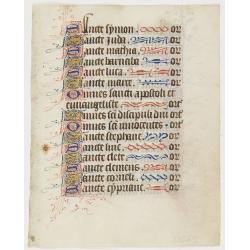 Sancte symon. or
Sancte iuda. or
Sancte mathia. or
Sancte barnaba or
Sancte luca. or
Sancte marce. or
Omnes sancti apostoli et
euuangeliste or
Omnes sci discipuli dni or
Omnes sci innocētes or
Sancte stephane or
Sancte line or
Sancte clete or
Sancte clemens or
Sancte corneli or
Sancte cypriane or